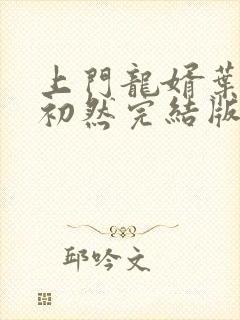 上門龍婿葉
初然完結版
邱吟文